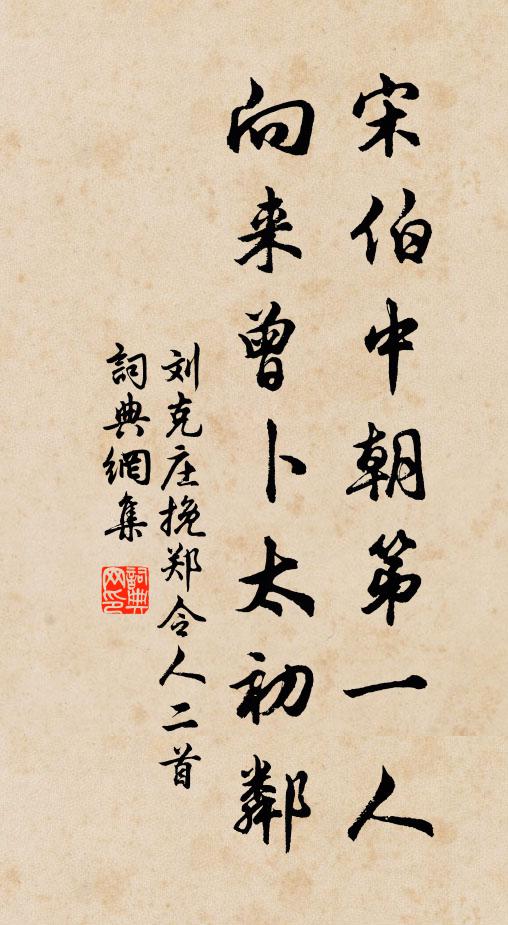 宋伯中朝第一人
向来曾卜太初鄰
刘克庄挽郑令人二首
詞典網集
詞典网印